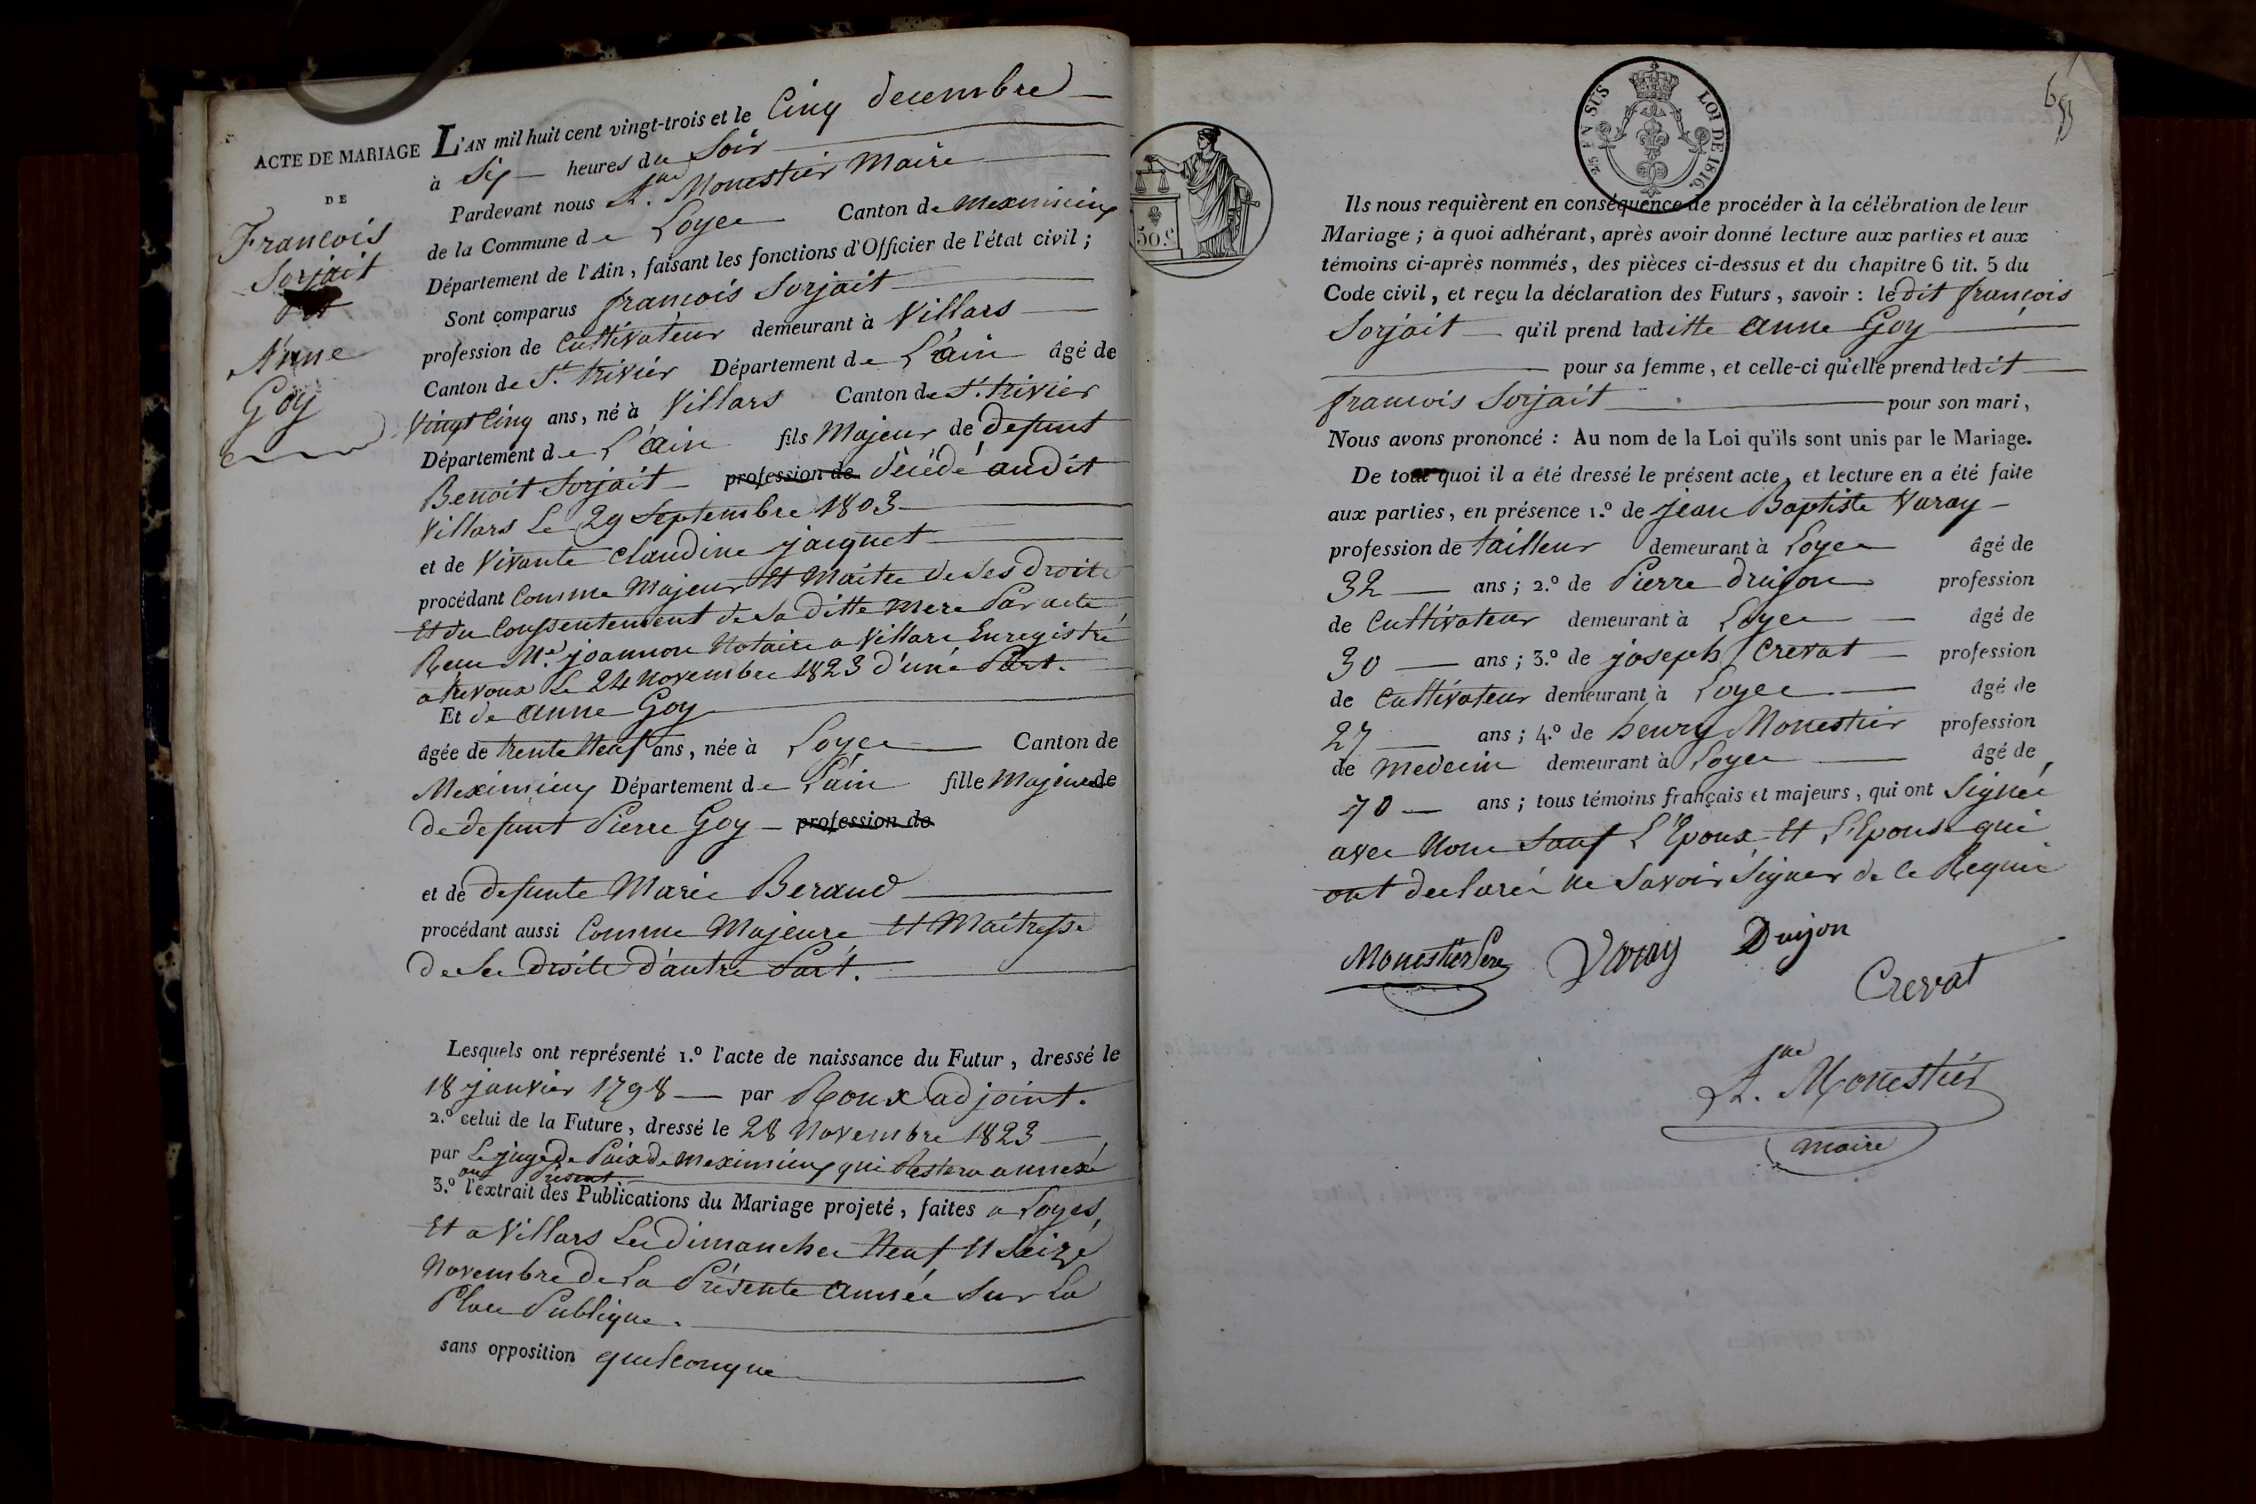 ACTE DE MARIAGE
DE
François
Sorjait
Et
Anne
Goy
L'AN mil huit cent vingt-trois et le Cinq decembre
à Six heures du Soir
Pardevant nous A. Monestier Maire
de la Commune de Loyes Canton de Meximieux
Département de l'Ain, faisant les fonctions d'Officier de l'état civil;
Sont comparus françois Sorjait
profession de Cultivateur demeurant à Villars
Canton de St. trivier Département de L'ain âgé de
Vingt Cinq ans, né à Villars Canton de St. trivier
Département de L'ain fils Majeur de defunt
Benoit Sorjait profession de décédé audit
Villars Le 29 Septembre 1803
et de Vivante Claudine jacquet
procédant Comme Majeur Et Maitre de Ses droits
Et du Consentement de Sa ditte Mere Par acte
Recu Me. joannon Notaire a Villars Enregistré
a trevoux Le 24 Novembre 1823 d'une Part.
Et de anne Goy
âgée de trente Neuf ans, née à Loyes Canton de
Meximieux Département de L'ain fille Majeure de
De defunt Pierre Goy profession de
et de defunte Marie Beraud
procédant aussi Comme Majeure Et Maitresse
De Ses Droits D'autre Part.
Lesquels ont représenté 1.º l'acte de naissance du Futur, dressé le
18 janvier 1798 par Roux adjoint.
2.º celui de la Future, dressé le 28 Novembre 1823
par Le juge de Paix de Meximieux qui Restera annexé
au Présent
3.º l'extrait des Publications du Mariage projeté, faites a Loyes,
Et a Villars Les Dimanches Neuf Et Seize
Novembre De La Présente année Sur La
Place Publique.
sans opposition quelconque
50.c
25 EN SUS
LOI DE 1816.
Ils nous requièrent en conséquence de procéder à la célébration de leur
Mariage; à quoi adhérant, après avoir donné lecture aux parties et aux
témoins ci-après nommés, des pièces ci-dessus et du chapitre 6 tit. 5 du
Code civil, et reçu la déclaration des Futurs, savoir: ledit françois
Sorjait qu'il prend laditte anne Goy
pour sa femme, et celle-ci qu'elle prend ledit
francois Sorjait pour son mari,
Nous avons prononcé: Au nom de la Loi qu'ils sont unis par le Mariage.
De tout quoi il a été dressé le présent acte, et lecture en a été faite
aux parties, en présence 1.º de jean Baptiste Varay
profession de tailleur demeurant à Loyes âgé de
32 ans; 2.º de Pierre Druijon profession
de Cultivateur demeurant à Loyes âgé de
30 ans; 3.º de joseph Crevat profession
de Cultivateur demeurant à Loyes âgé de
27 ans; 4.º de henry Monestier profession
de Medecin demeurant à Loyes âgé de
70 ans; tous témoins français et majeurs, qui ont Signés
avec Nous Sauf L'Epoux Et L'Epouse qui
ont declarés ne Savoir Signer de ce Requis
Monestier Pere
Varay
Druijon
Crevat
A. Monestier
maire